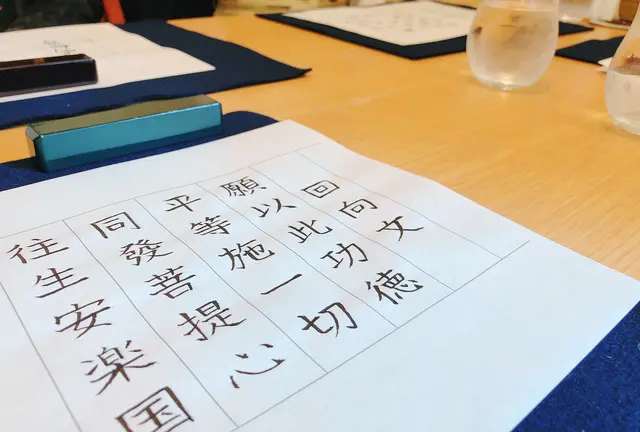 回向文
願以此功德
平等施一切
同發菩提心
往生安楽国